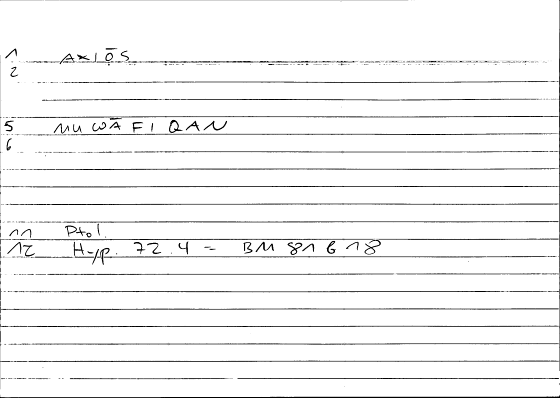 1 AXIŌS
2
5 MUWĀFIQAN
6
11 Ptol.
12 Hyp. 72.4 = BM 81 b 18